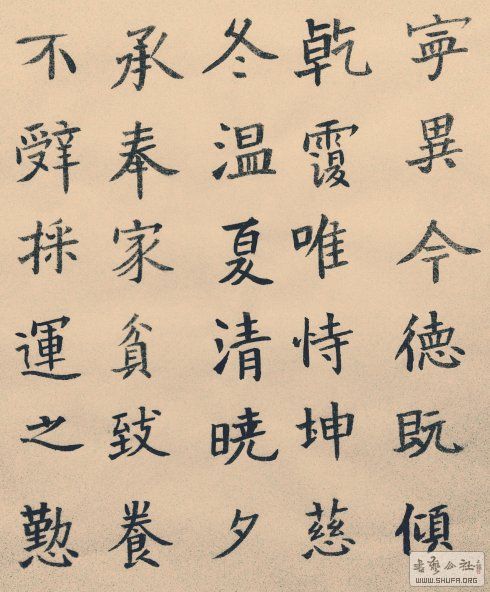 寜異今德既傾
乾覆唯恃坤慈
冬温夏清曉夕
承奉家貧致養
不辤採運之懃
书艺公社
WWW.SHUFA.ORG